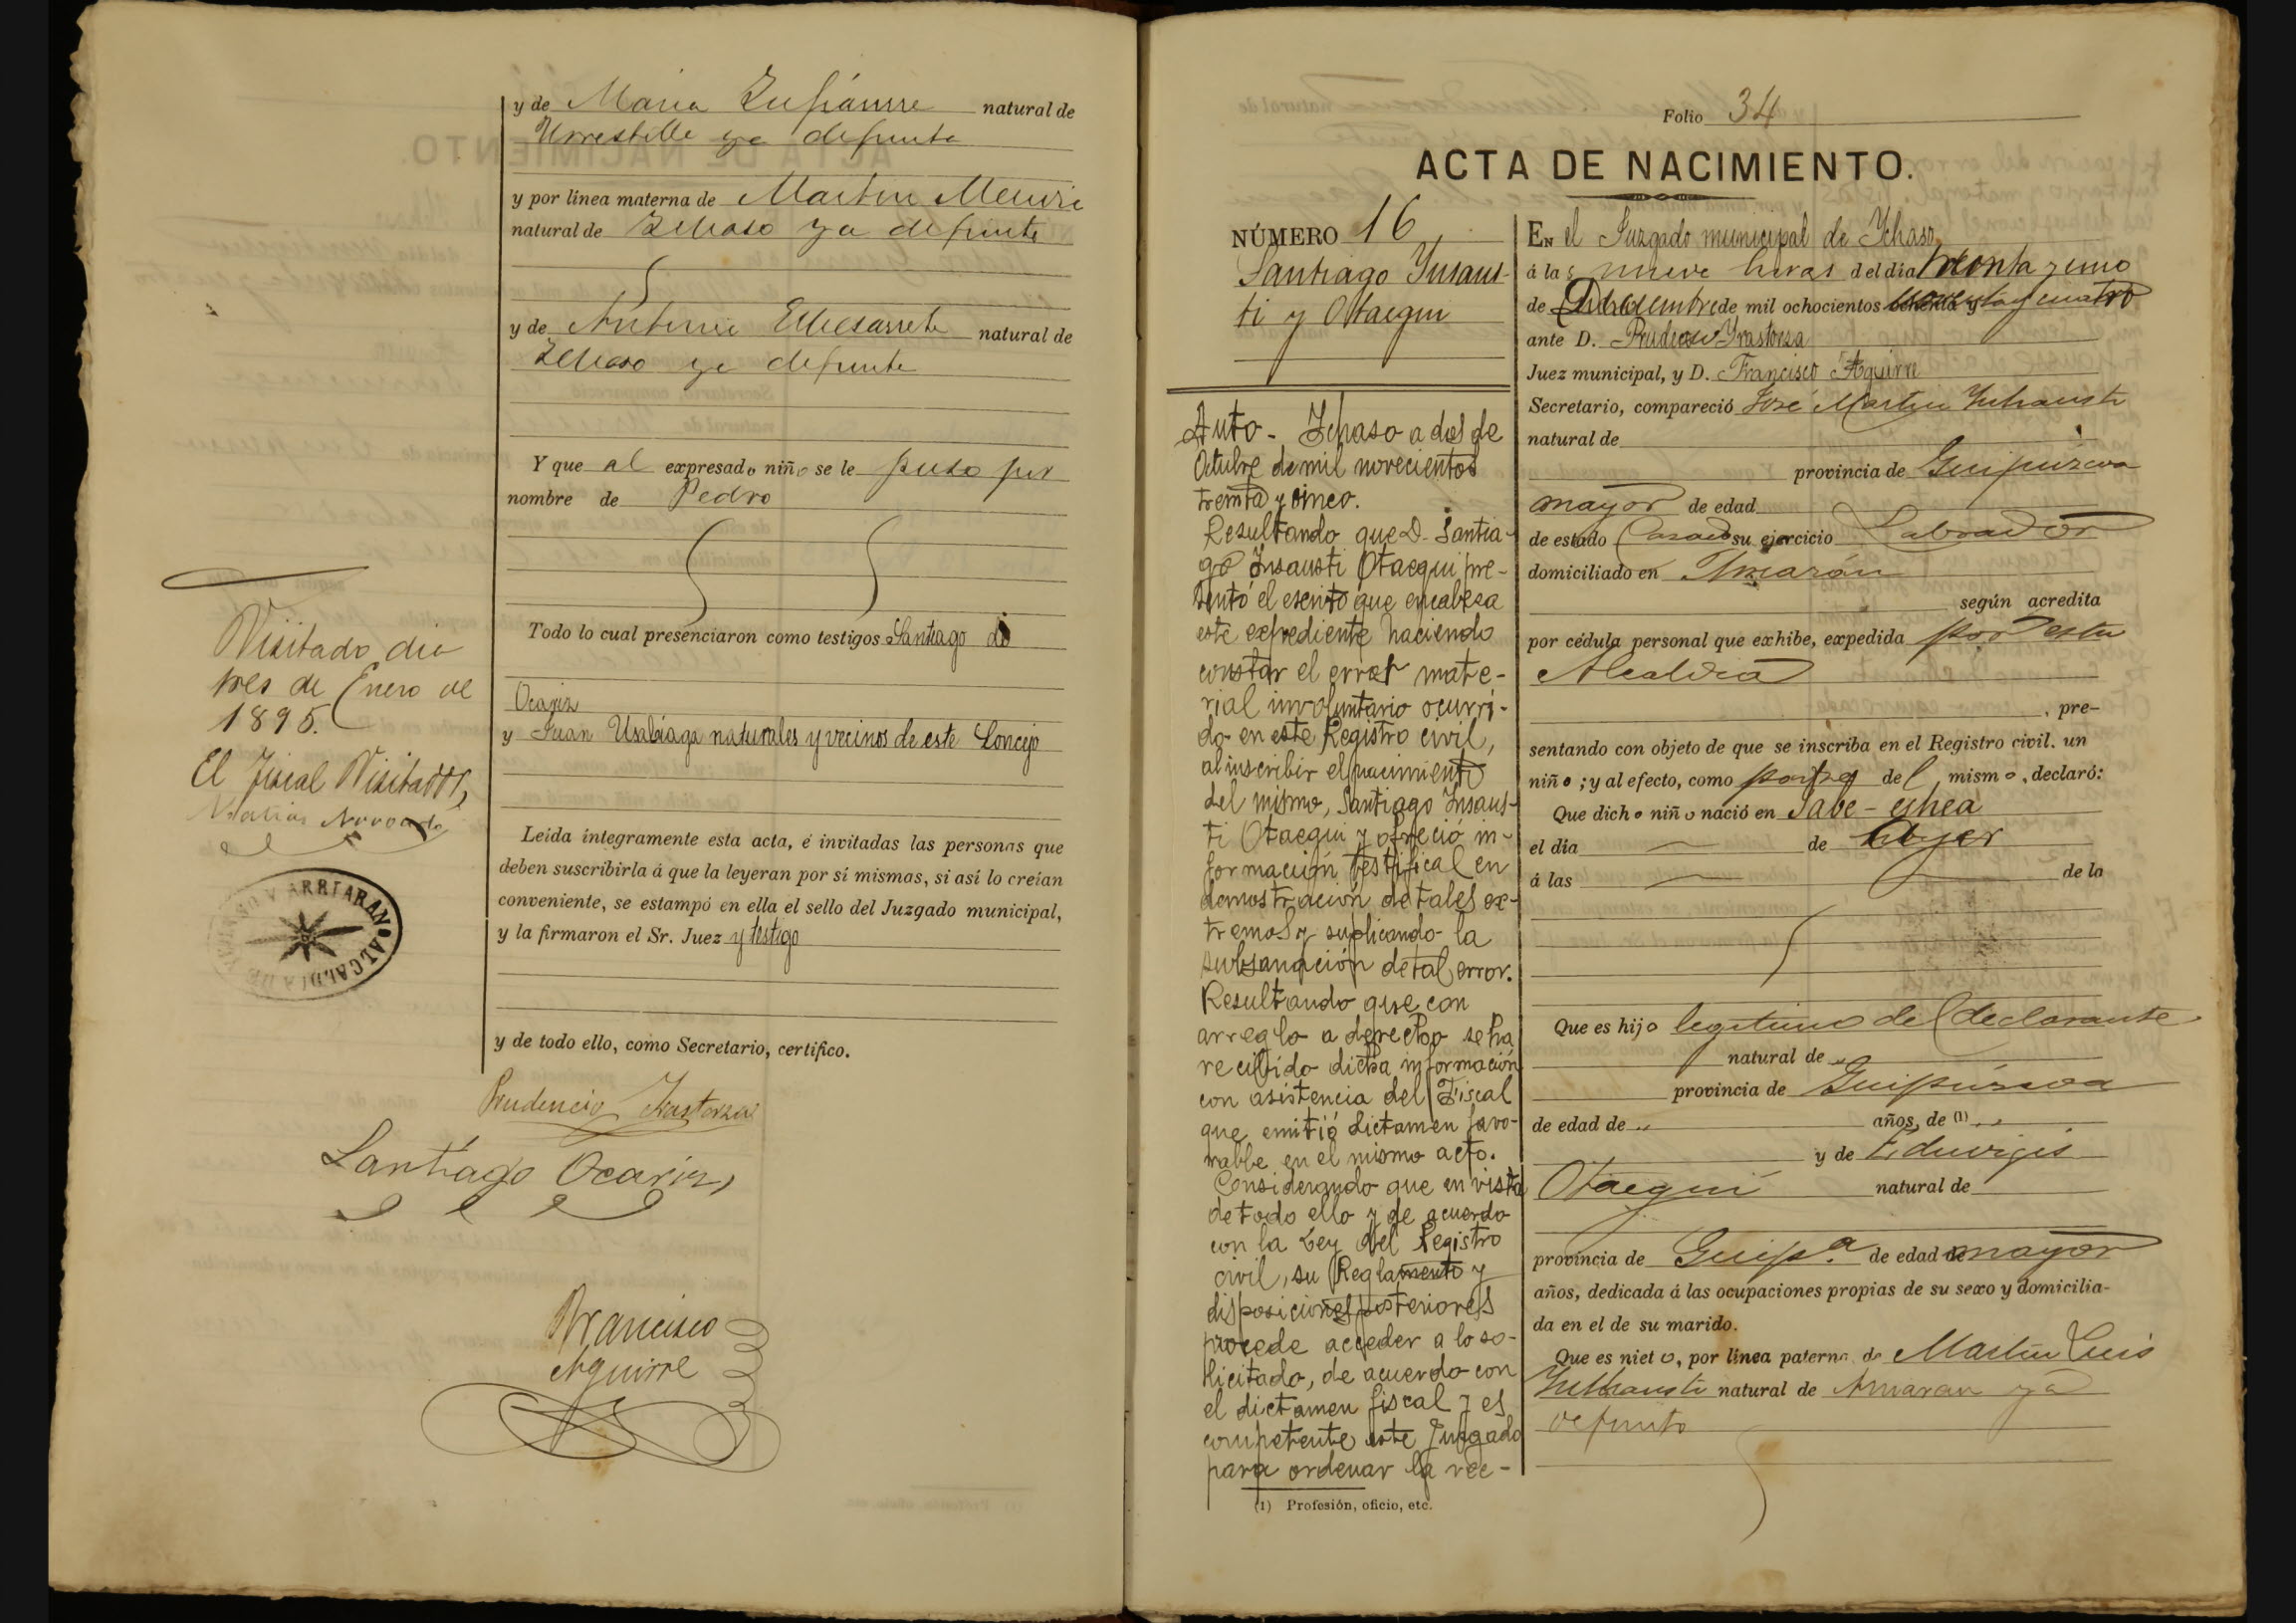 y de María Zufiaurre natural de
Urrestilla ya difunta
y por línea materna de Martin Mendi
natural de Ichaso ya difunto
y de Antonia Echezarreta natural de
Ichaso ya difunta
Y que al expresado niño se le puso por
nombre de Pedro
Todo lo cual presenciaron como testigos Santiago de
Ocariz
y Juan Usabiaga naturales y vecinos de este Concejo
Leída íntegramente esta acta, é invitadas las personas que
deben suscribirla á que la leyeran por sí mismas, si así lo creían
conveniente, se estampó en ella el sello del Juzgado municipal,
y la firmaron el Sr. Juez y testigo
y de todo ello, como Secretario, certifico.
Prudencio Irastorza
Santiago Ocariz,
Francisco
Aguirre
Visitado dia
tres de Enero de
1895.
El Fiscal Visitador,
Y ARRIARAN ALCALDIA DE
Folio 34
ACTA DE NACIMIENTO.
NÚMERO 16
Santiago Insaus-
ti y Otaegui
Auto - Ichaso a dos de
Octubre de mil novecientos
treinta y cinco.
Resultando que D. Santia-
go Insausti Otaegui pre-
sentó el escrito que encabeza
este expediente haciendo
constar el error mate-
rial involuntario ocurri-
do en este Registro civil,
al inscribir el nacimiento
del mismo, Santiago Insaus-
ti Otaegui y ofreció in-
formación testifical en
demostración de tales ex-
tremos y suplicando la
subsanación de tal error.
Resultando que con
arreglo a derecho se ha
recibido dicha información
con asistencia del Fiscal
que emitió dictamen favo-
rable en el mismo acto.
Considerando que en vista
de todo ello y de acuerdo
con la Ley del Registro
civil, su Reglamento y
disposiciones posteriores
procede acceder a lo so-
licitado, de acuerdo con
el dictamen fiscal y es
competente este Juzgado
para ordenar la rec-
(1) Profesión, oficio, etc.
EN el Juzgado municipal de Ichaso
á las nueve horas del día treinta y uno
de Diciembre de mil ochocientos noventa y cuatro
ante D. Prudencio Irastorza
Juez municipal, y D. Francisco Aguirre
Secretario, compareció José Martin Inchausti
natural de
provincia de Guipúzcoa
mayor de edad
de estado Casado su ejercicio Labrador
domiciliado en Arriarán
según acredita
por cédula personal que exhibe, expedida por esta
Alcaldia
, pre-
sentando con objeto de que se inscriba en el Registro civil. un
niño; y al efecto, como padre del mismo, declaró:
Que dicho niño nació en
el día de Ayer
á las de la
Que es hijo legitimo del declarante
natural de
provincia de Guipúzcoa
de edad de años, de (1)
y de Eduvigis
Otaegui natural de
provincia de Guipª de edad de mayor
años, dedicada á las ocupaciones propias de su sexo y domicilia-
da en el de su marido.
Que es nieto, por línea paterna de Martin Luis
Inchausti natural de Arriaran ya
difunto